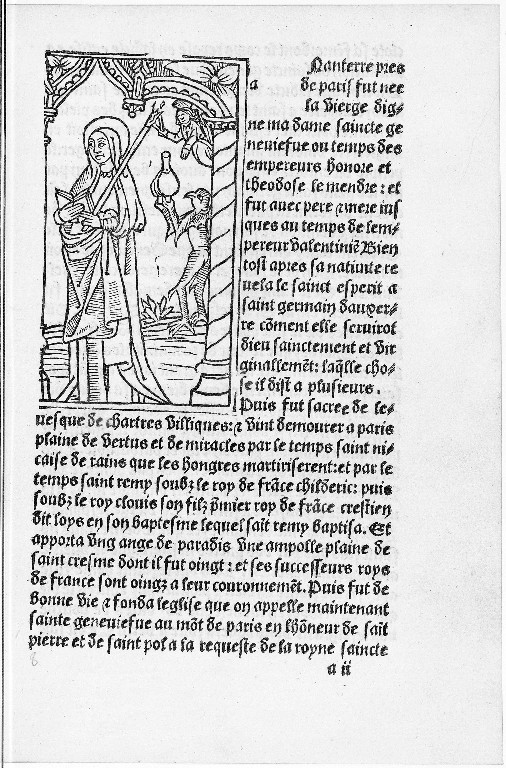 Nanterre pres
a de paris fut nee
la vierge dig-
ne ma dame saincte ge
neuiefue ou temps des
empereurs honore et
theodose le mendre : et
fut auec pere ⁊ mere ius
ques au temps de lem-
pereur valentiniē Bien
tost apres sa natiuite re
uela le sainct esperit a
saint germain dauxer-
re cōment elle seruirot
dieu sainctement et vir
ginallemēt: laq̄lle cho-
se il dist a plusieurs.
Puis fut sacree de le-
uesque de chartres villiques: ⁊ vint demourer a paris
plaine de vertus et de miracles par le temps saint ni-
caise de rains que les hongres martiriserent: et par le
temps saint remy soubz le roy de frāce childeric: puis
soubz le roy clouis son filz p̄mier roy de frāce crestien
dit loys en son baptesme lequel saīt remy baptisa. Et
apporta vng ange de paradis vne ampolle plaine de
saint cresme dont il fut oingt : et ses successeurs roys
de france sont oingz a leur couronnemēt. Puis fut de
bonne vie ⁊ fonda leglise que on appelle maintenant
sainte geneuiefue au mōt de paris en lhōneur de saīt
pierre et de saint pol a la requeste de la royne saincte
a ii